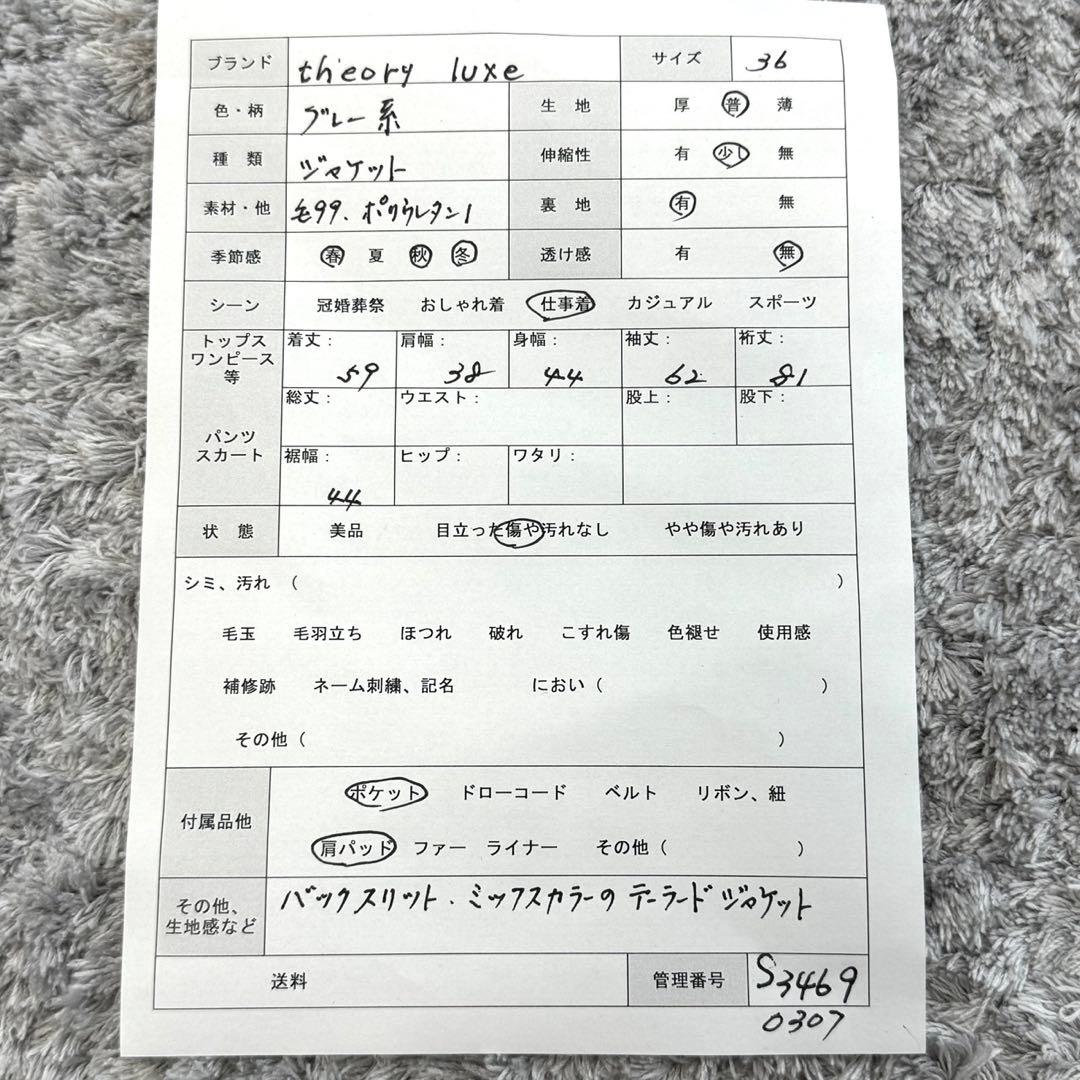 ブランド theory luxe サイズ 36
色・柄 グレー系 生地 厚 普 薄
種類 ジャケット 伸縮性 有 少し 無
素材・他 毛99、ポリウレタン1 裏地 有 無
季節感 春 夏 秋 冬 透け感 有 無
シーン 冠婚葬祭 おしゃれ着 仕事着 カジュアル スポーツ
トップス ワンピース 等 着丈： 59 肩幅： 38 身幅： 44 袖丈： 62 裄丈： 81
パンツ スカート 総丈： ウエスト： 股上： 股下：
裾幅： 44 ヒップ： ワタリ：
状態 美品 目立った傷や汚れなし やや傷や汚れあり
シミ、汚れ （ ）
毛玉 毛羽立ち ほつれ 破れ こすれ傷 色褪せ 使用感
補修跡 ネーム刺繍、記名 におい（ ）
その他（ ）
付属品他 ポケット ドローコード ベルト リボン、紐
肩パッド ファー ライナー その他（ ）
その他、生地感など バックスリット・ミックスカラーのテーラードジャケット
送料 管理番号 S3469
0307